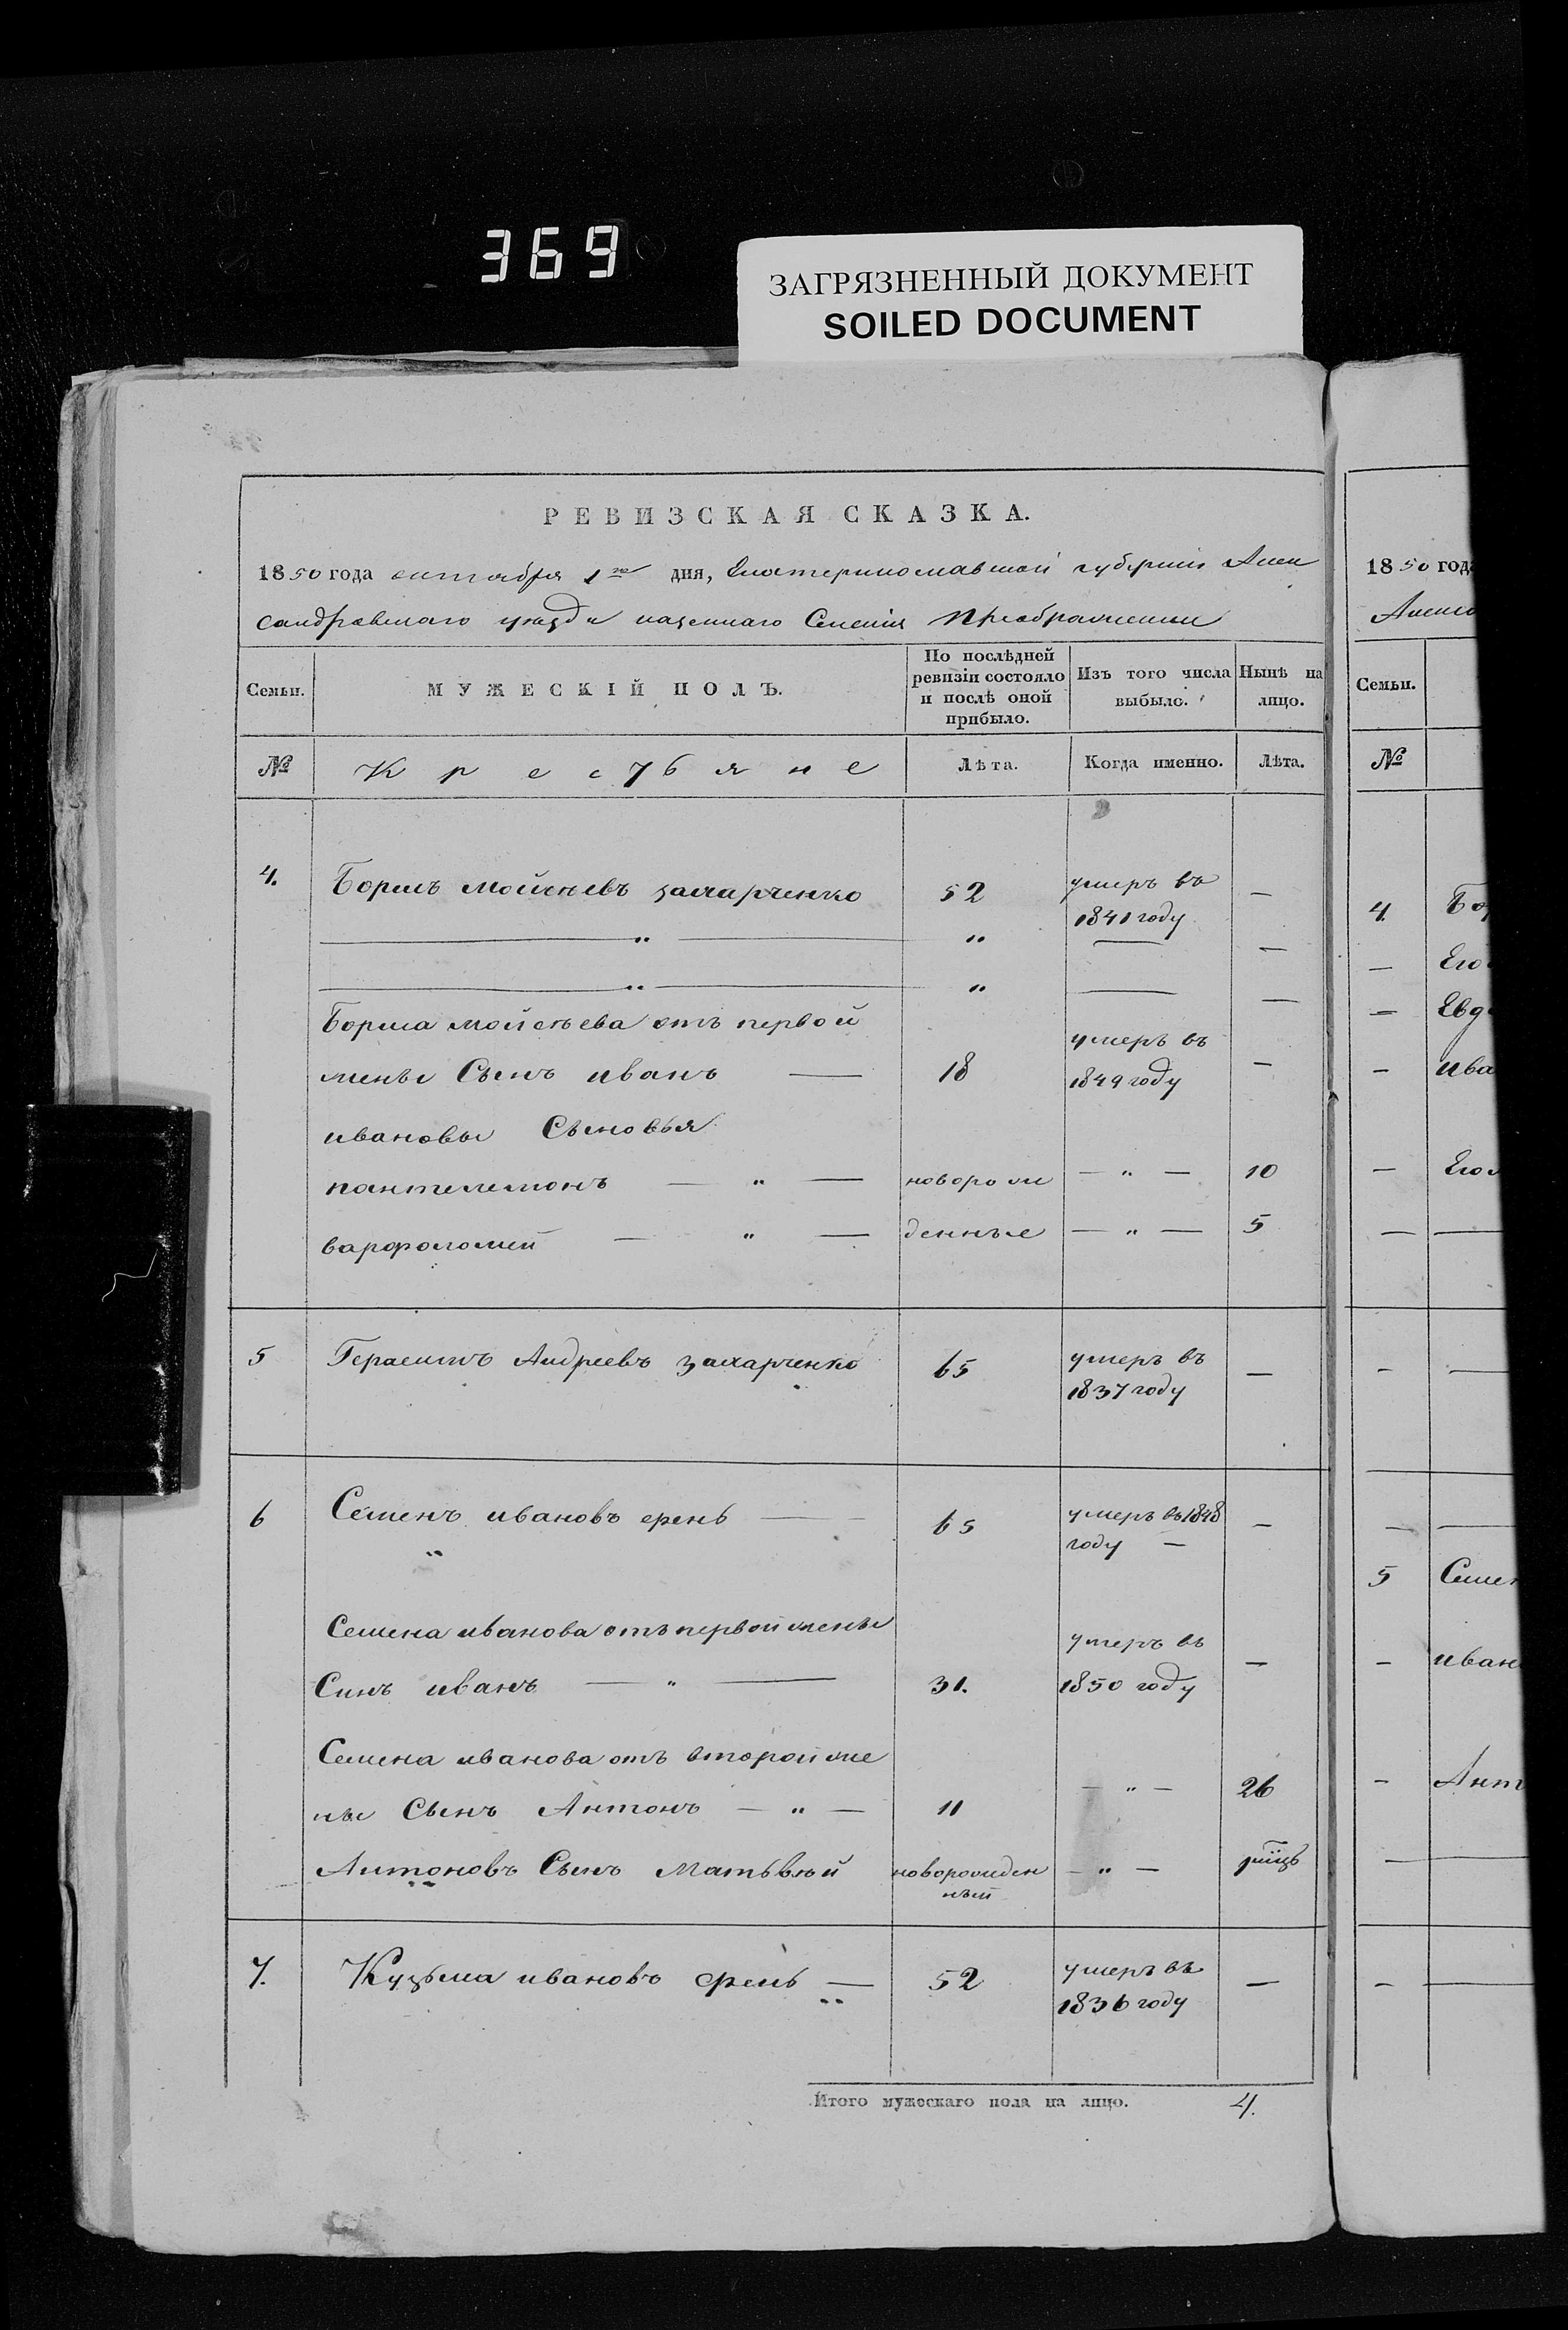 369
ЗАГРЯЗНЕННЫЙ ДОКУМЕНТ
SOILED DOCUMENT
РЕВИЗСКАЯ СКАЗКА.
1850 года октября 1го дня, Екатеринославской губернiи Алек
сандровскаго уѣзда казеннаго Селенiя Преображенки
Семьи. МУЖЕСКIЙ ПОЛЪ. По послѣдней ревизiи состояло и послѣ оной прибыло. Изъ того числа выбыло. Нынѣ на лицо.
№ Крестьяне Лѣта. Когда именно. Лѣта.
4. Борисъ Мойсѣевъ захарченко 52 умеръ въ 1841 году —
— " — " — —
— " — " — —
Бориса мойсѣева отъ первой
жены Сынъ иванъ — 18 умеръ въ 1849 году —
ивановы Сыновья
пантелемонъ — " — новорож — " — 10
варфоломей — " — денные — " — 5
5 Герасимъ Андреевъ захарченко 65 умеръ въ 1837 году —
6 Семенъ ивановъ ерень — 65 умеръ въ 1848 году — —
"
Семена иванова отъ первой жены
Синъ иванъ — " — 31. умеръ въ 1850 году —
Семена иванова отъ второй же
ны Сынъ Антонъ — " — 11 — " — 26
Антоновъ Сынъ матьвѣй новорожден ный — " —
7. Кузьма ивановъ — 52 умеръ въ 1836 году —
Итого мужескаго пола на лицо. 4.
1850 года
Семьи.
№
4.
— Его
—
— ива
—
5 Семен
— иван
— Ант